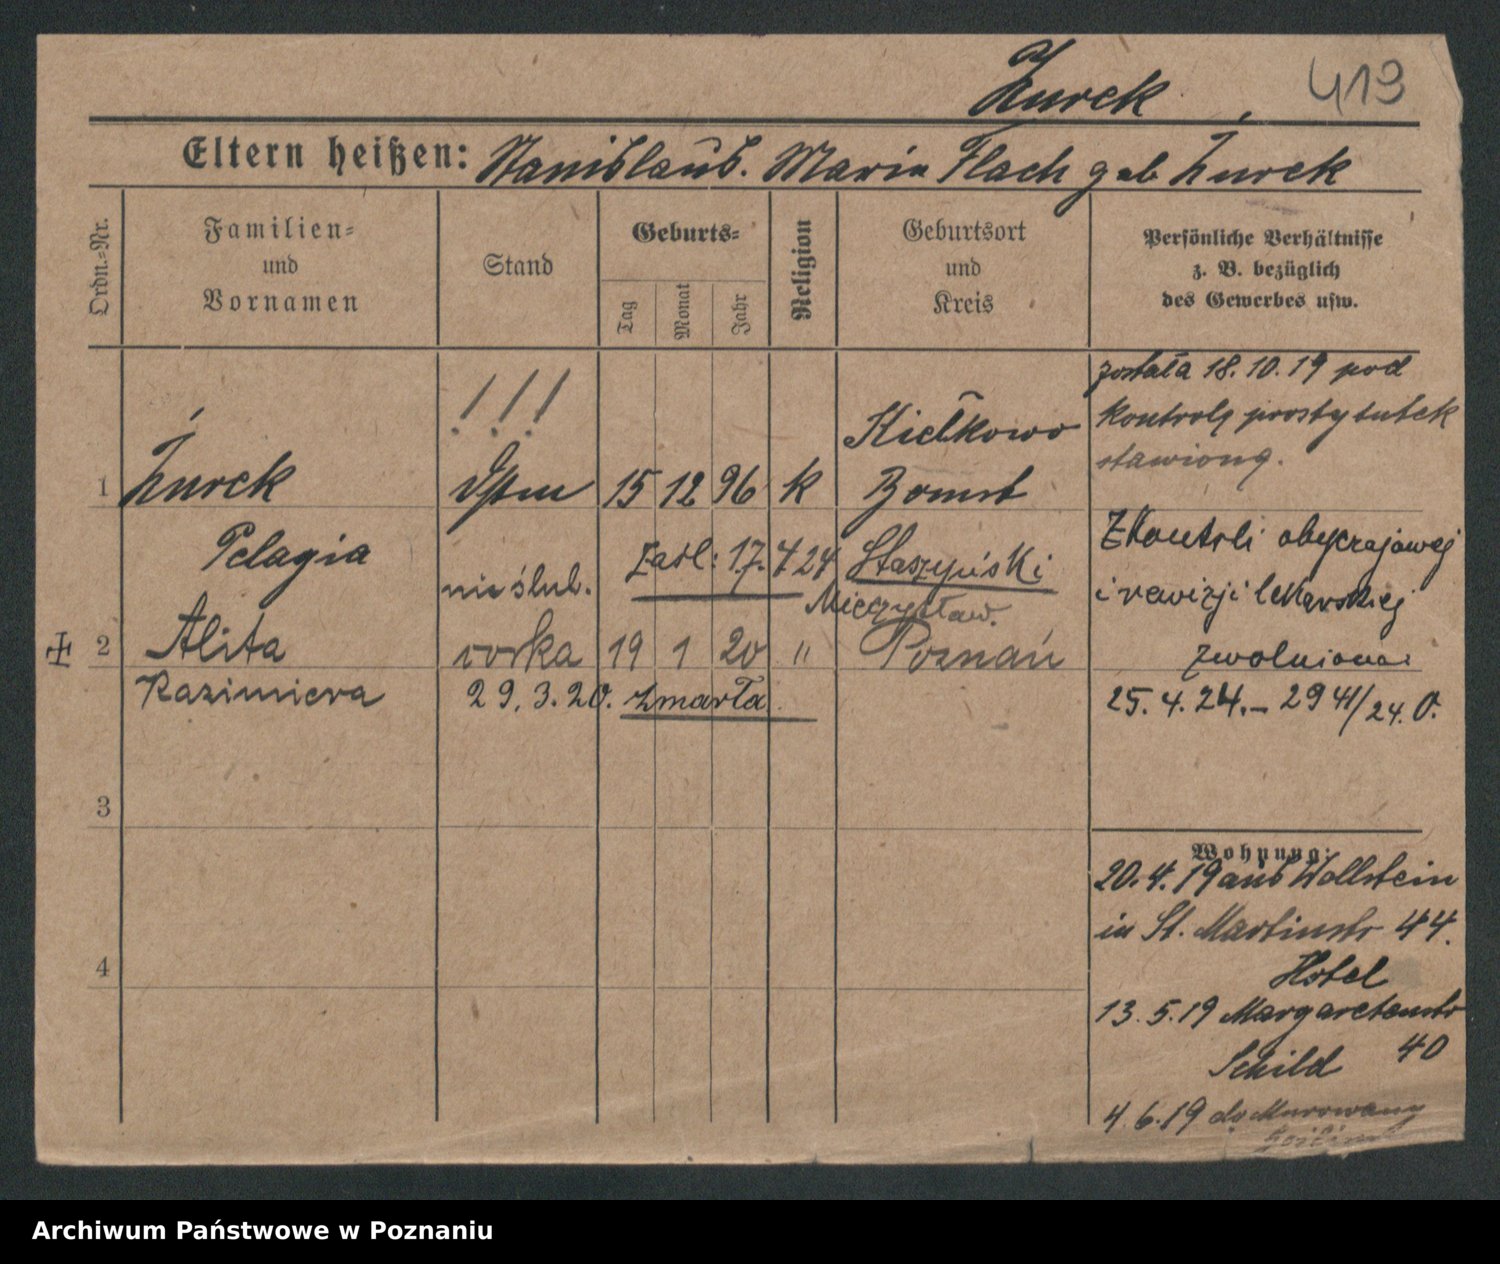 Żurek 419
Eltern heißen: Stanislaus. Maria Flach geb Żurek
Ordn.-Nr.
Familien-
und
Vornamen
Stand
Geburts-
Tag
Monat
Jahr
Religion
Geburtsort
und
Kreis
Persönliche Verhältnisse
z. B. bezüglich
des Gewerbes usw.
została 18.10.19 pod
kontrolę prostytutek
stawioną.
! ! !
Kiełkowo
1 Żurek 15 12 96 k Bomst
Pelagia
Zaśl: 17.4 24 Staszyński
Mieczysław.
Z kontroli obyczajowej
i rewizji lekarskiej
zwolniona:
25. 4. 24. – 2941/24. O.
nieślub.
2 Alita córka 19 1 20 " Poznań
Kazimiera 29. 3. 20. zmarła
3
4
Wohnung:
20. 4. 19 aus Wollstein
in St. Martinstr 44.
Hotel
13. 5. 19 Margaretenstr
40
Schild
4. 6. 19 do Murowany
Archiwum Państwowe w Poznaniu